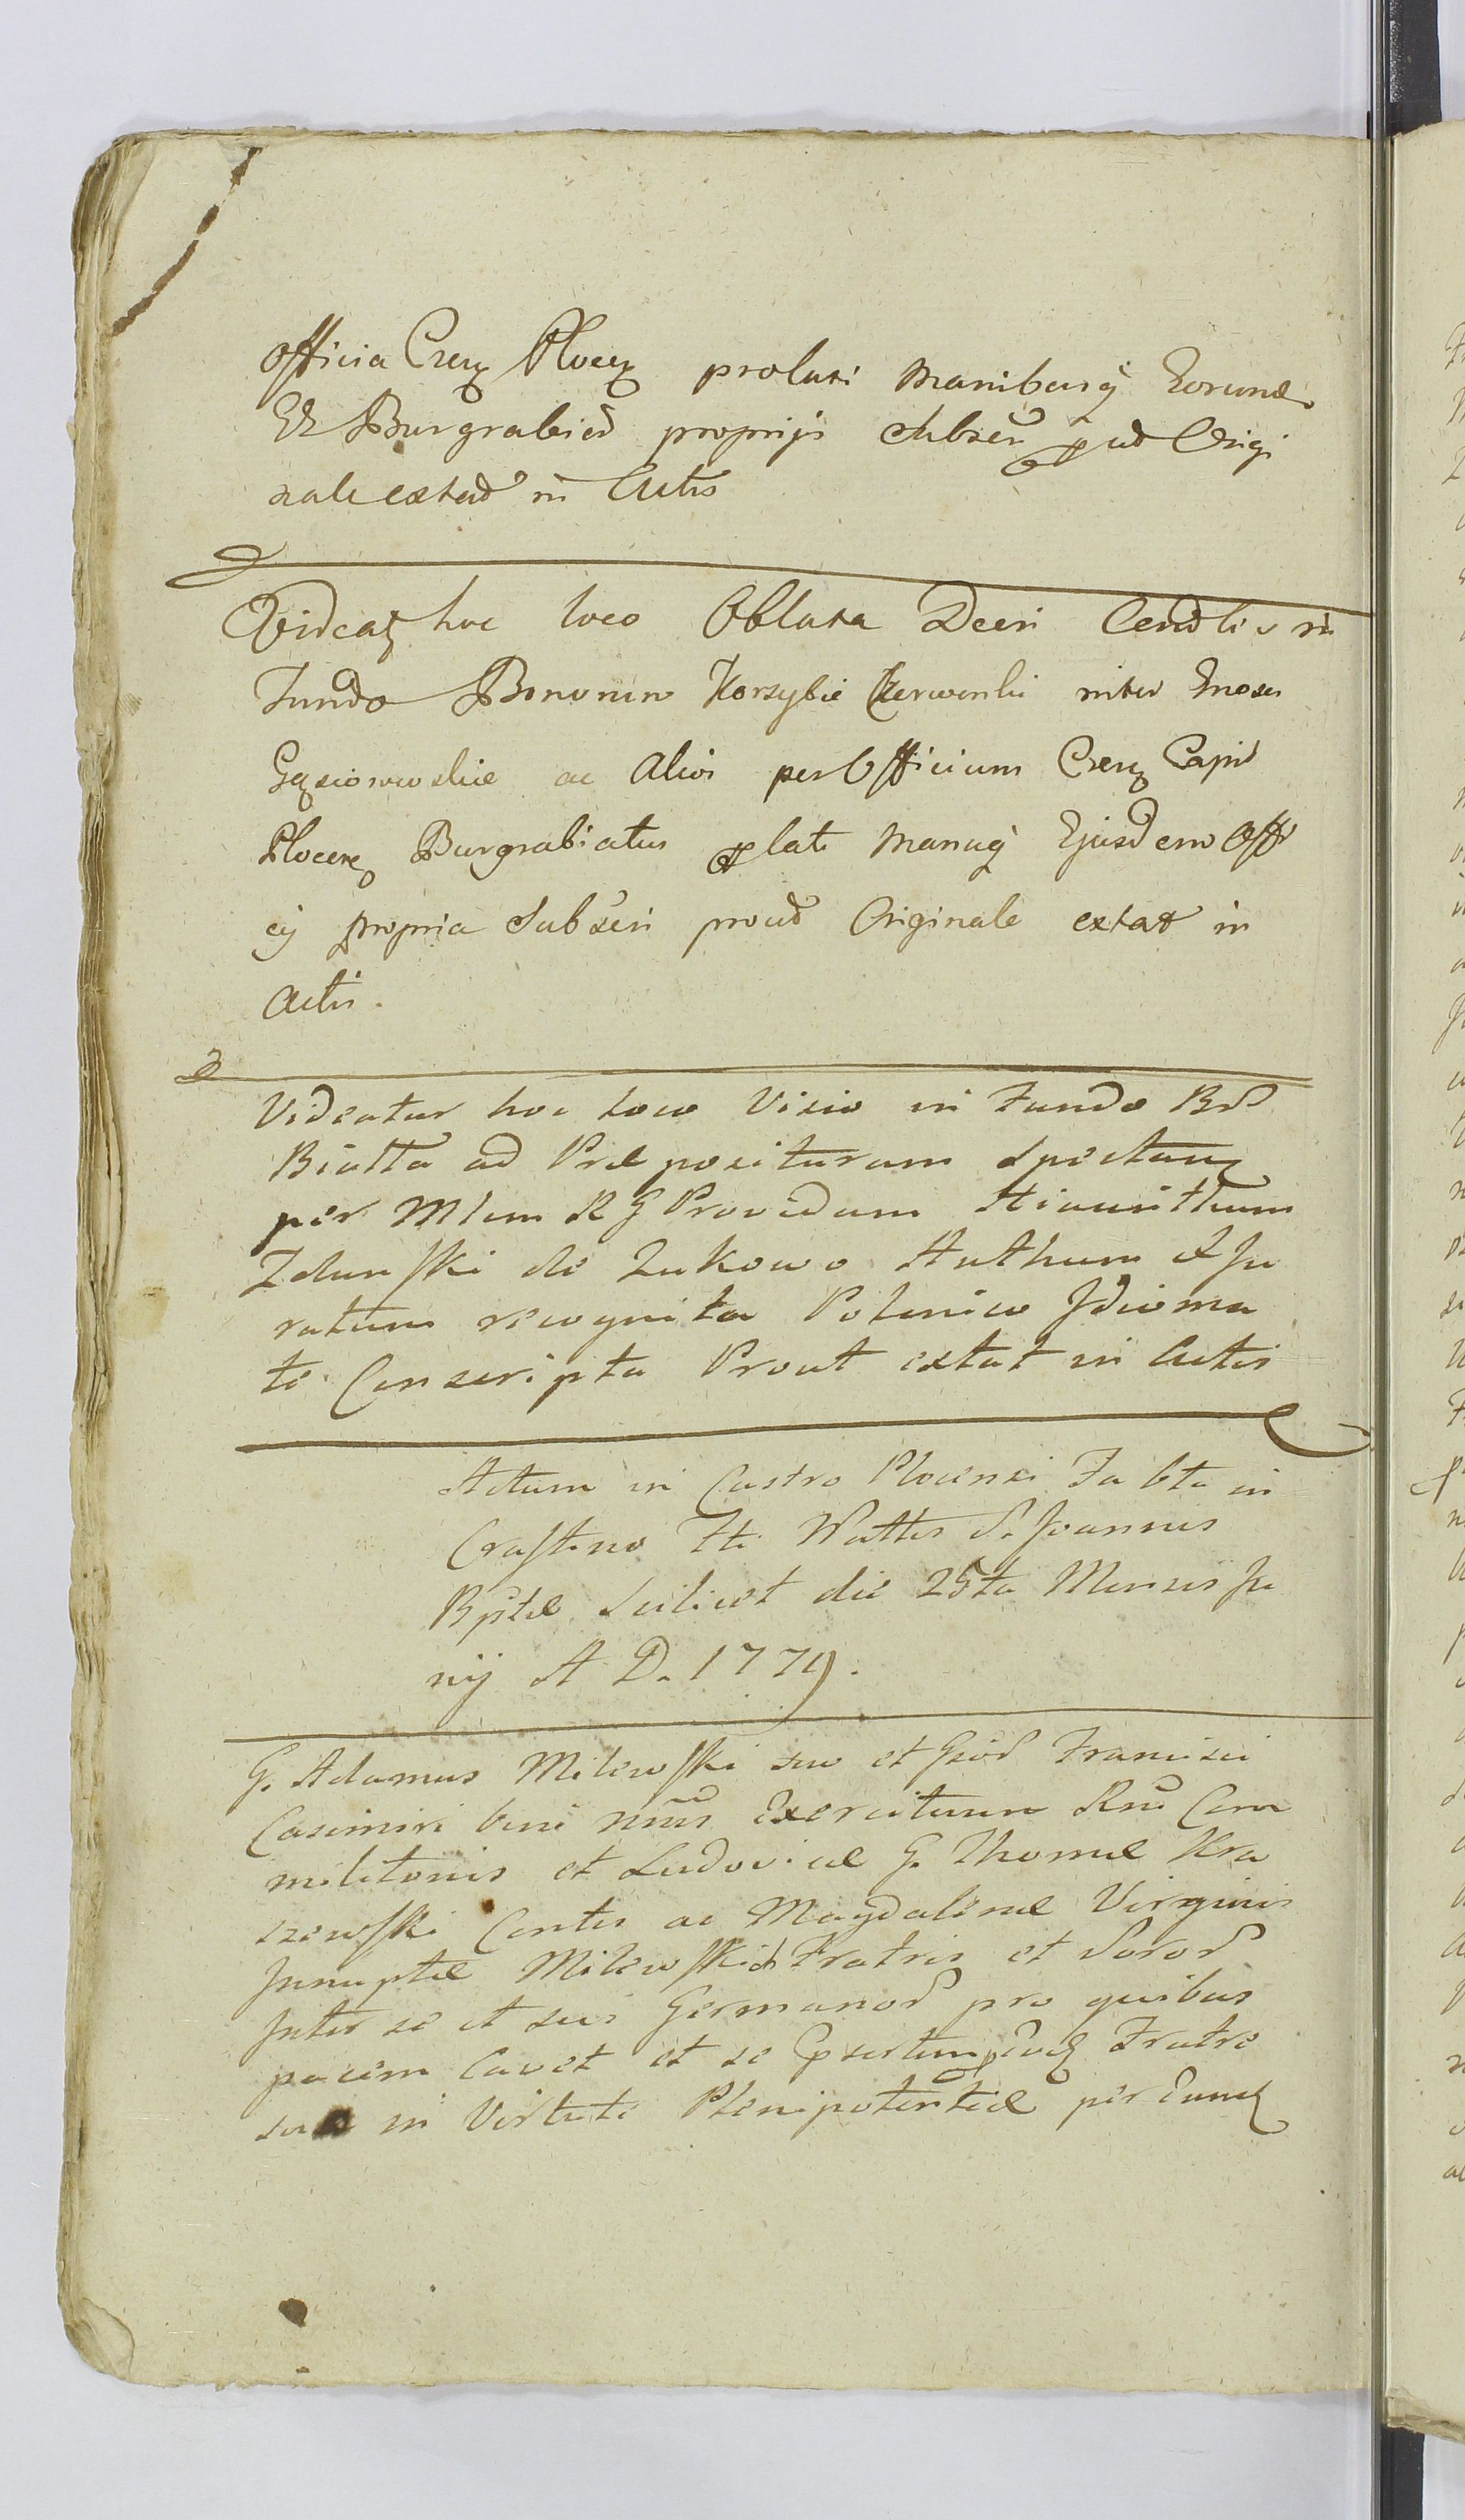 officia Cren Plocen prolati manibusq Eorund
Et Burgrabied proprijs Subscri pud Origi
nale extad in Actis
Videatz hoc loco Oblata Decri Cendlis in
Fundo Bonorum Korzybie Czerwonki inter Gnosos
Gąsiorowskie ac Alios per Officium Cren Capit
Plocen Burgrabiatus plati Manuq Ejusdem Offi
cij propria Subscri proud Originale extat in
Actis.
Videatur hoc loco Visio in Fundo Brd
Biała ad Præposituram Spectan
per Mlem R G Providum Hiacinthum
Zdunski de Łukowo Authum et Ju
ratum recognita Polonico Jdioma
te Conscripta Prout extat in Actis
Actum in Castro Plocensi Fa bta in
Crastino Fti Nattis S. Joannis
Bptæ Scilicet die 25ta Mensis Ju
nij A D. 1779.
G. Adamus Milewski suo et Gsod Francisci
Casimiri bini nnis Exercituum Rni Com
militonis et Ludovicæ G. Thomæ Kra
szewski Contis ac Magdalenæ Virginis
Jnnuptæ Milewskid Fratris et Sorod
Jnter se et sui Germanod pro quibus
pacem Cavet et se
Fratre
suo in Virtute Plenipotentiæ per Eund